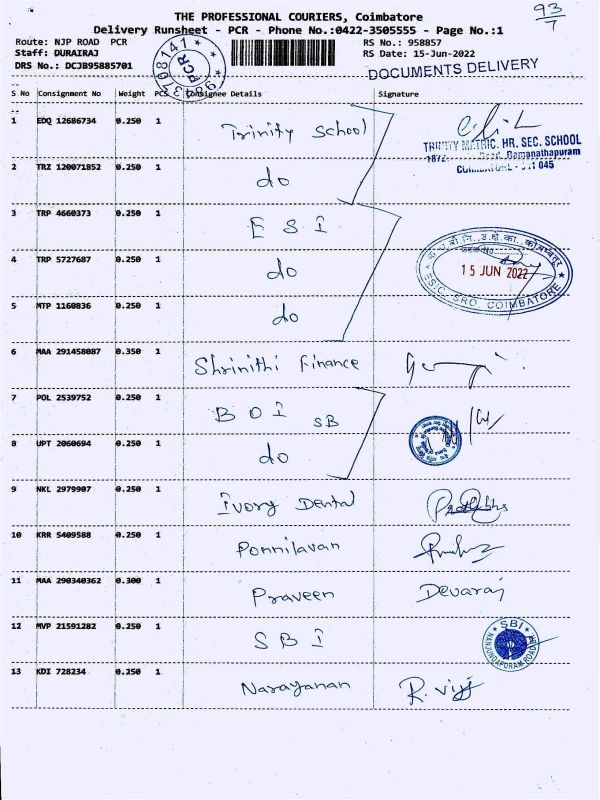 93/7
THE PROFESSIONAL COURIERS, Coimbatore
Delivery Runsheet - PCR - Phone No.:0422-3505555 - Page No.:1
Route: NJP ROAD PCR RS No.: 958857
Staff: DURAIRAJ RS Date: 15-Jun-2022
DRS No.: DCJB95885701
PCR
DOCUMENTS DELIVERY
S No Consignment No Weight PCS Consignee Details Signature
1 EDQ 12686734 0.250 1 Trinity School
TRINITY MATRIC. HR. SEC. SCHOOL
Ramanathapuram
COIMBATORE - 641 045
2 TRZ 120071852 0.250 1 do
3 TRP 4660373 0.250 1 E S I
4 TRP 5727687 0.250 1 do
15 JUN 2022
ESIC, SRO, COIMBATORE
5 MTP 1160836 0.250 1 do
6 MAA 291458087 0.350 1 Shrinithi Finance
7 POL 2539752 0.250 1 B O I SB
8 UPT 2060694 0.250 1 do
9 NKL 2979907 0.250 1 Ivory Dental
10 KRR 5409588 0.250 1 Ponnilavan
11 MAA 290340362 0.300 1 Praveen Devaraj
12 MVP 21591282 0.250 1 S B I
SBI
NANJUNDAPURAM ROAD
13 KDI 728234 0.250 1 Narayanan R. Viji